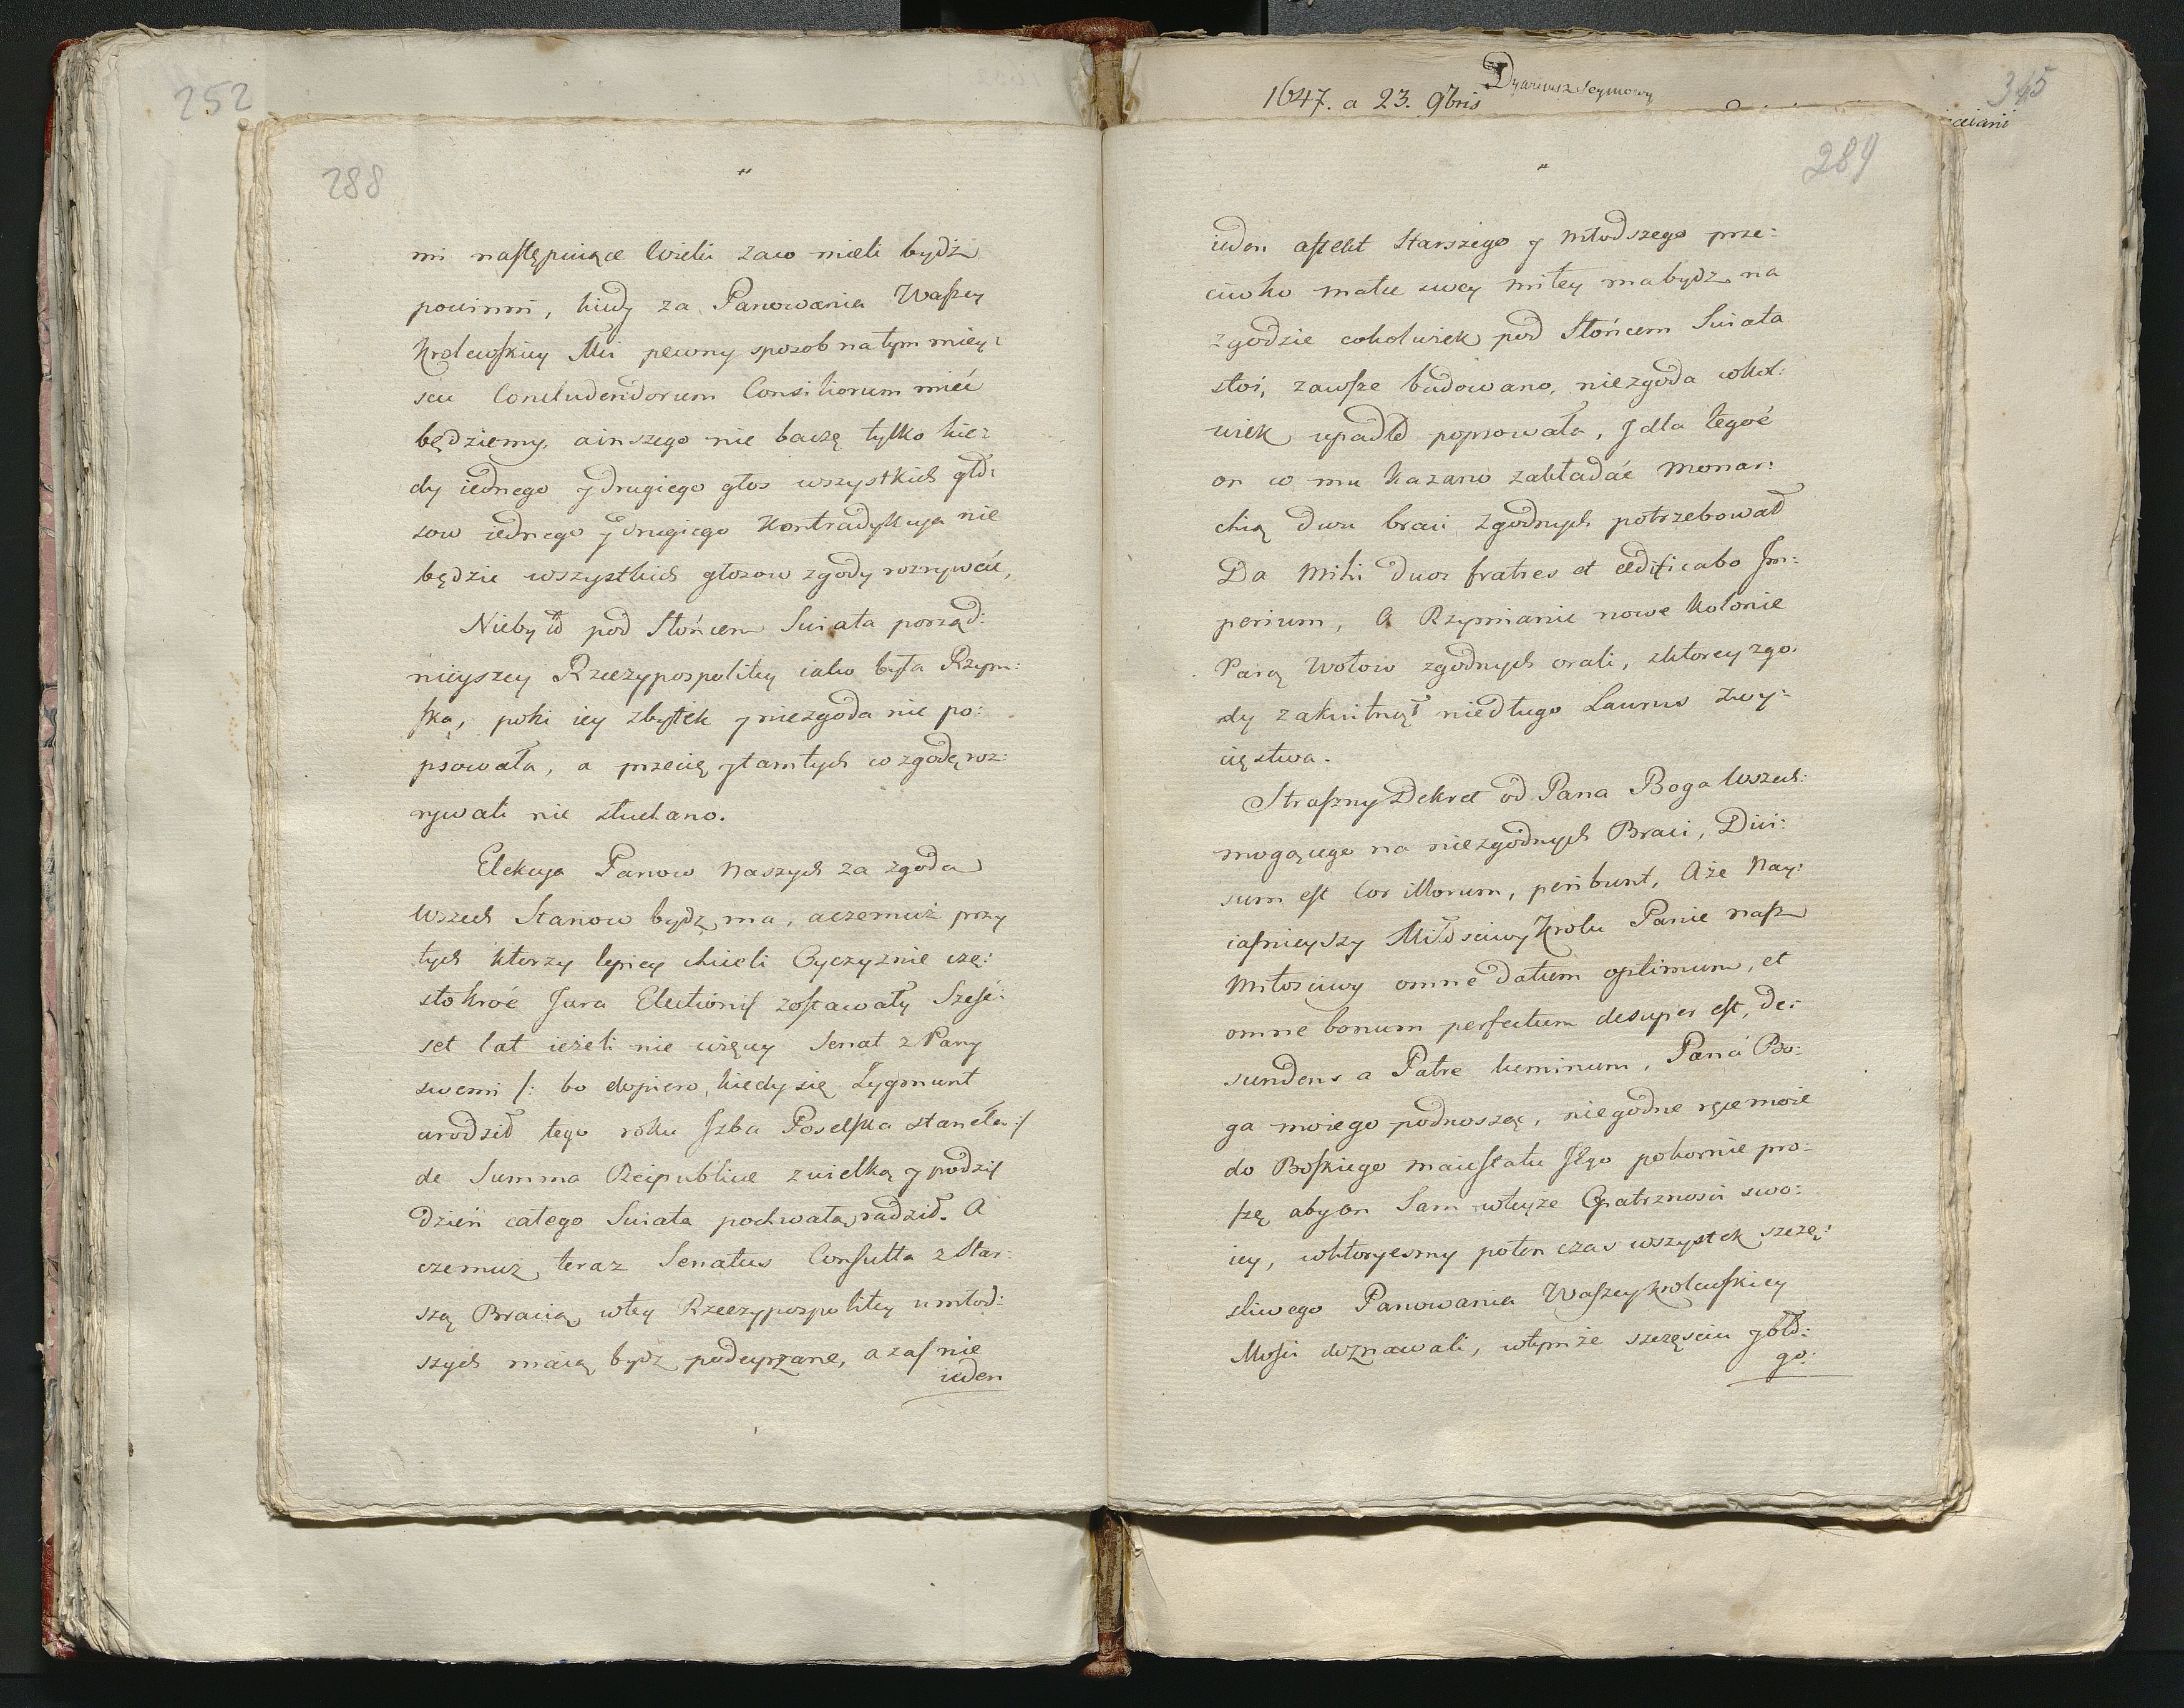 252
288
"
mi następuiące Wieki zaw mieli bydź
powinni, kiedy za Panowania Waszey
Krolewskiey Mci pewny sposob na tym miey:
scu Concludendorum Consiliorum mieć
będziemy, a inszego nie baczę tylko kie:
dy iednego y drugiego głos wszystkich gło:
sow iednego y drugiego Kontradykcya nie
będzie wszystkich głosow zgody rozrywać,
Nie był pod Słońcem Swiata porząd:
nieyszey Rzeczypospolitey iako była Rzym:
ska, poki iey zbytek y niezgoda nie po:
psowała, a przecię y tamtych co zgodę roz:
rywali nie słuchano.
Elekcya Panow Naszych za zgodą
Wszech Stanow bydz ma, a czemuż przy
tych ktorzy lepiey chcieli Oyczyznie czę:
stokroć Jura Electionis zostawały Sześć:
set lat ieżeli nie więcey Senat z Pany
swemi /: bo dopiero, kiedy się Zygmunt
urodził tego roku Izba Poselska stanęła :/
de Summa Reipublicae z wielką y podziś
dzień całego Swiata pochwałą radził. A
czemuż teraz Senatus Consulta z Star:
szą Bracią w tey Rzeczypospolitey u młod:
szych maią bydz podeyrzane, a zaś nie
ieden
1647. a 23. 9bris
Dyariusz Seymowy
345
289
"
ieden affekt Starszego y Młodszego prze:
ciwko matce swey miłey ma bydz na
zgodzie cokolwiek pod Słońcem Swiata
stoi, zawsze budowano, niezgoda cokol:
wiek upadło popsowała, y dla tegoć
on co mu kazano zakładać Monar:
chią dwu braci zgodnych potrzebował
Da Mihi duos fratres et aedificabo Im:
perium, A Rzymianie nowe Kolonie
Parą Wołow zgodnych orali, z ktorey zgo:
dy zakwitnął niedługo Laurus zwy:
cięstwa.
Straszny Dekret od Pana Boga Wszech:
mogącego na niezgodnych Braci, Divi:
sum est Cor illorum, peribunt, A że Nay:
iaśnieyszy Miłosciwy Krolu Panie nasz
Miłosciwy omne datum optimum, et
omne bonum perfectum desuper est, de:
scendens a Patre luminum, Pana Bo:
ga moiego podnosząc, niegodne ręce moie
do Boskiego maiestatu Jego pokornie pro:
szę aby on Sam w teyże Opatrznosci swo:
iey, w ktoryesmy poten czas wszystek szczę:
sliwego Panowania Waszey Krolewskiey
Mosci doznawali, w tymże szczęsciu y bło:
go: